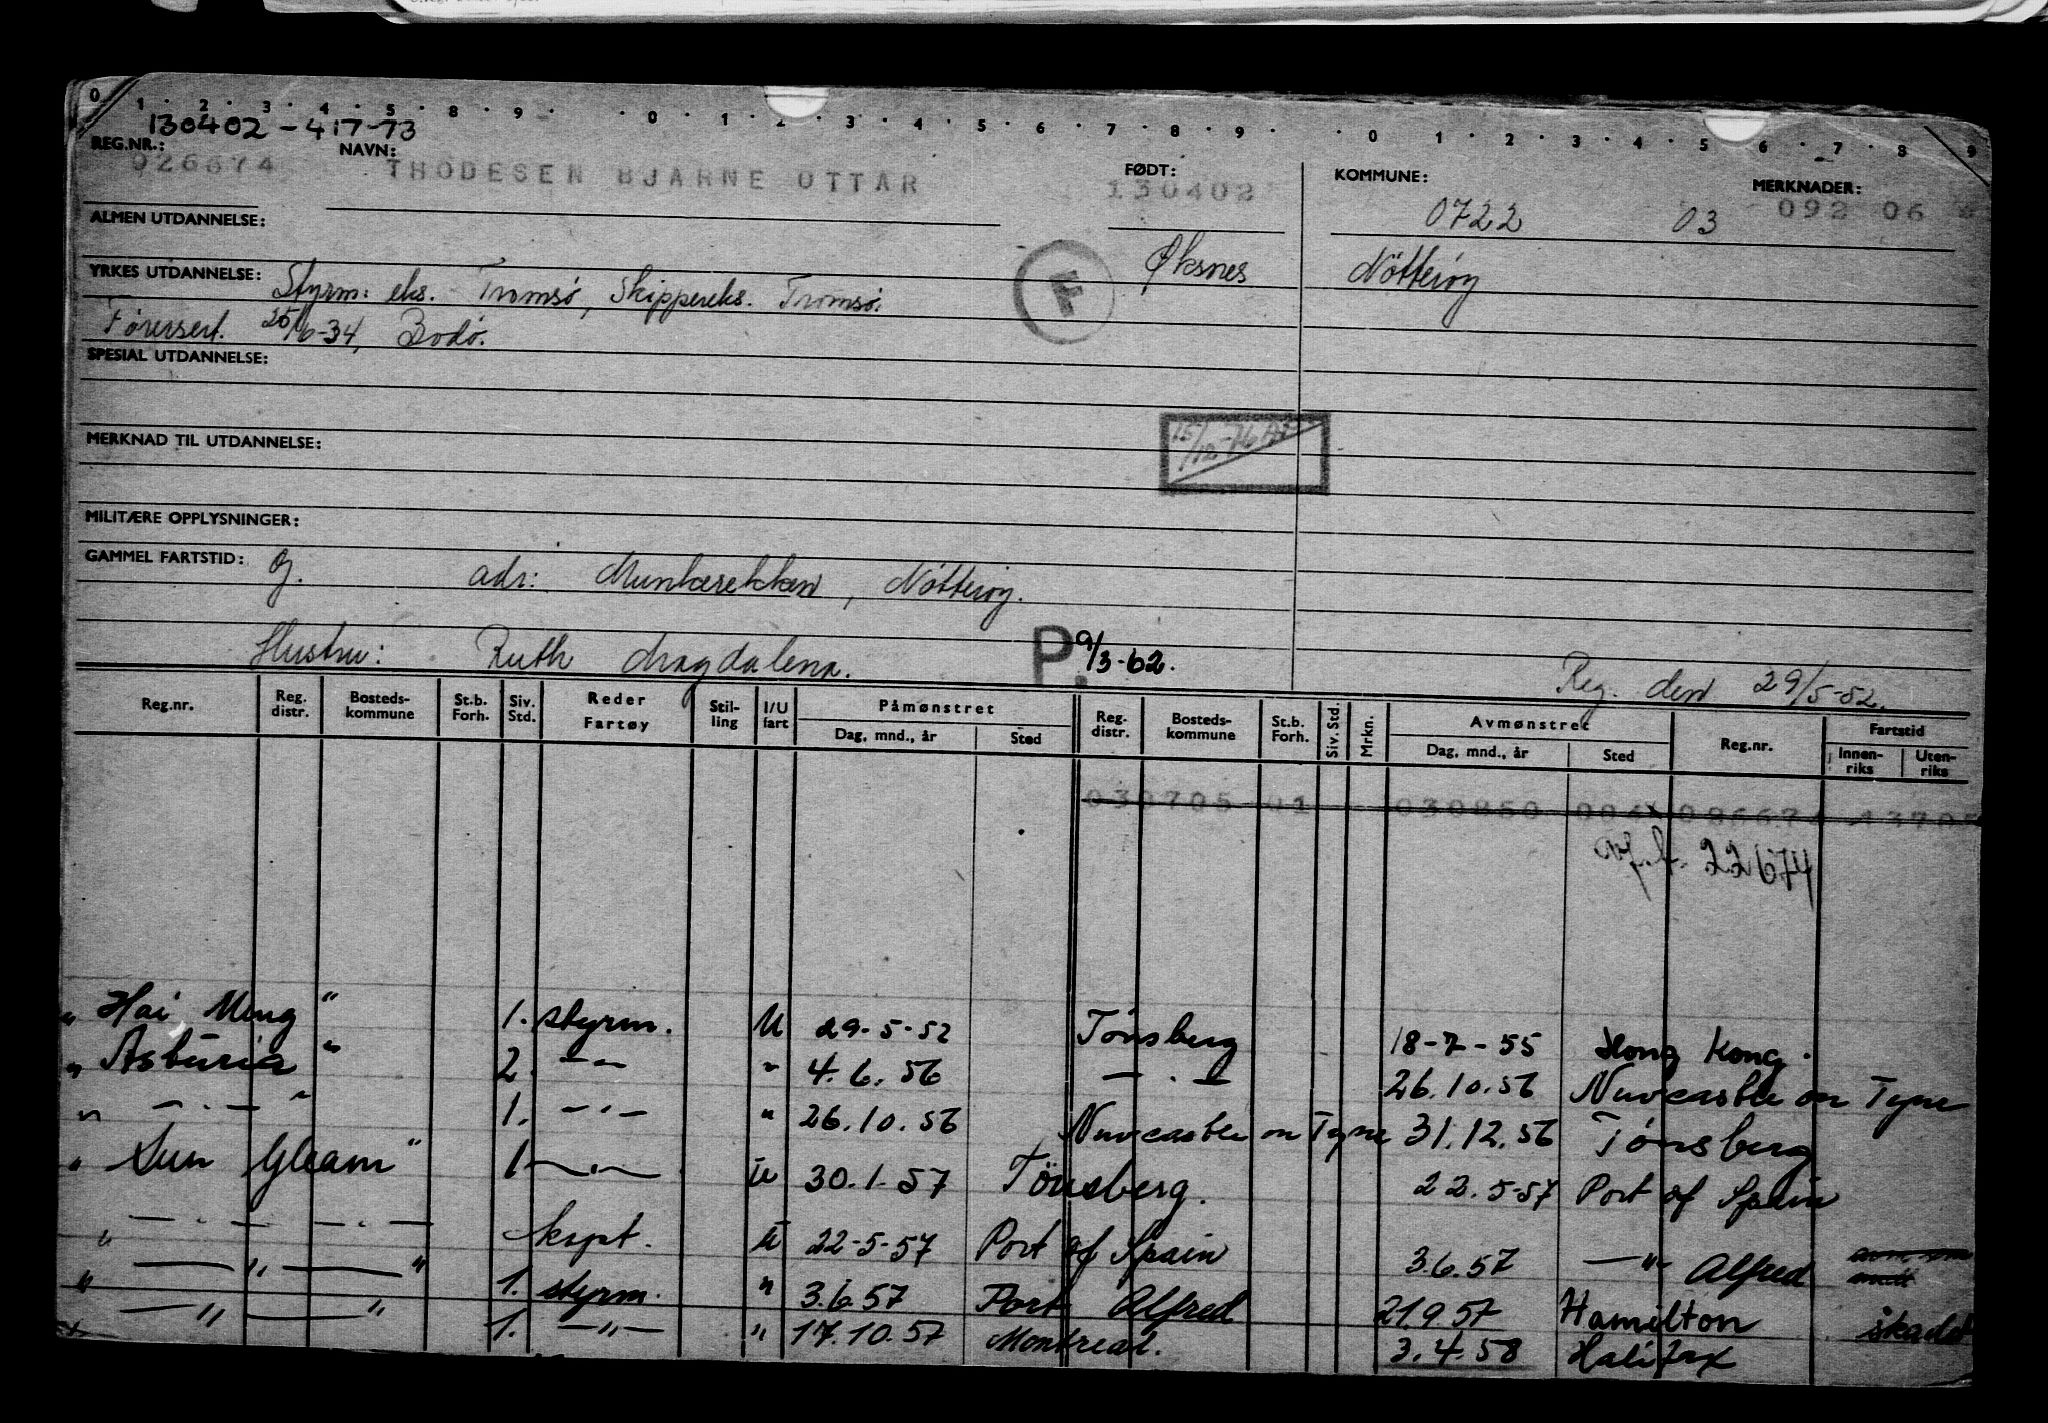 0 1 2 3 4 5 8 9 0 1 2 3 4 5 6 7 8 9 0 1 2 3 4 5 6 7 8 9
130402-417-73
REG.NR.: NAVN: FØDT: KOMMUNE: MERKNADER:
026674 THODESEN BJARNE OTTAR 130402 0722 03 092 06
ALMEN UTDANNELSE:
F Øksnes Nötteröy
YRKES UTDANNELSE: Styrm: eks. Tromsø, Skippereks. Tromsø.
Førersert. 25/6-34, Bodø.
SPESIAL UTDANNELSE:
15/12-76
MERKNAD TIL UTDANNELSE:
MILITÆRE OPPLYSNINGER:
GAMMEL FARTSTID: Oj. adr: Munkerekken, Nötteröy.
Hustru: Ruth Magdalena. P. 9/3-62. Reg. den 29/5-52.
Reg.nr. Reg. distr. Bosteds-kommune St.b. Forh. Siv. Std. Reder Fartøy Stil-ling I/U fart Påmønstret Dag, mnd., år Sted Reg. distr. Bosteds-kommune St.b. Forh. Siv. Std. Mrkn. Avmønstret Dag, mnd., år Sted Reg.nr. Fartstid Innen-riks Uten-riks
030705 01 030850 004 026674
" Hai Meng " 1. styrm. U 29-5-52 Tønsberg 18-7-55 Hong Kong.
" Asturia " 2. —"— " 4.6.56 — . — 26.10.56 Newcastle on Tyne
" — . — " 1. — . — " 26.10.56 Newcastle on Tyne 31.12.56 Tønsberg
" Sun Gleam " 1 — . — U 30.1.57 Tönsberg. 22.5-57 Port of Spain
" — . — . — skpt. U 22-5-57 Port of Spain 3.6.57 —"— Alfred
" — " — " 1. styrm. " 3.6.57 Port Alfred 21.9.57 Hamilton skadet
— " — " 1. —"— " 17.10.57 Montreal. 3.4.58 Halifax